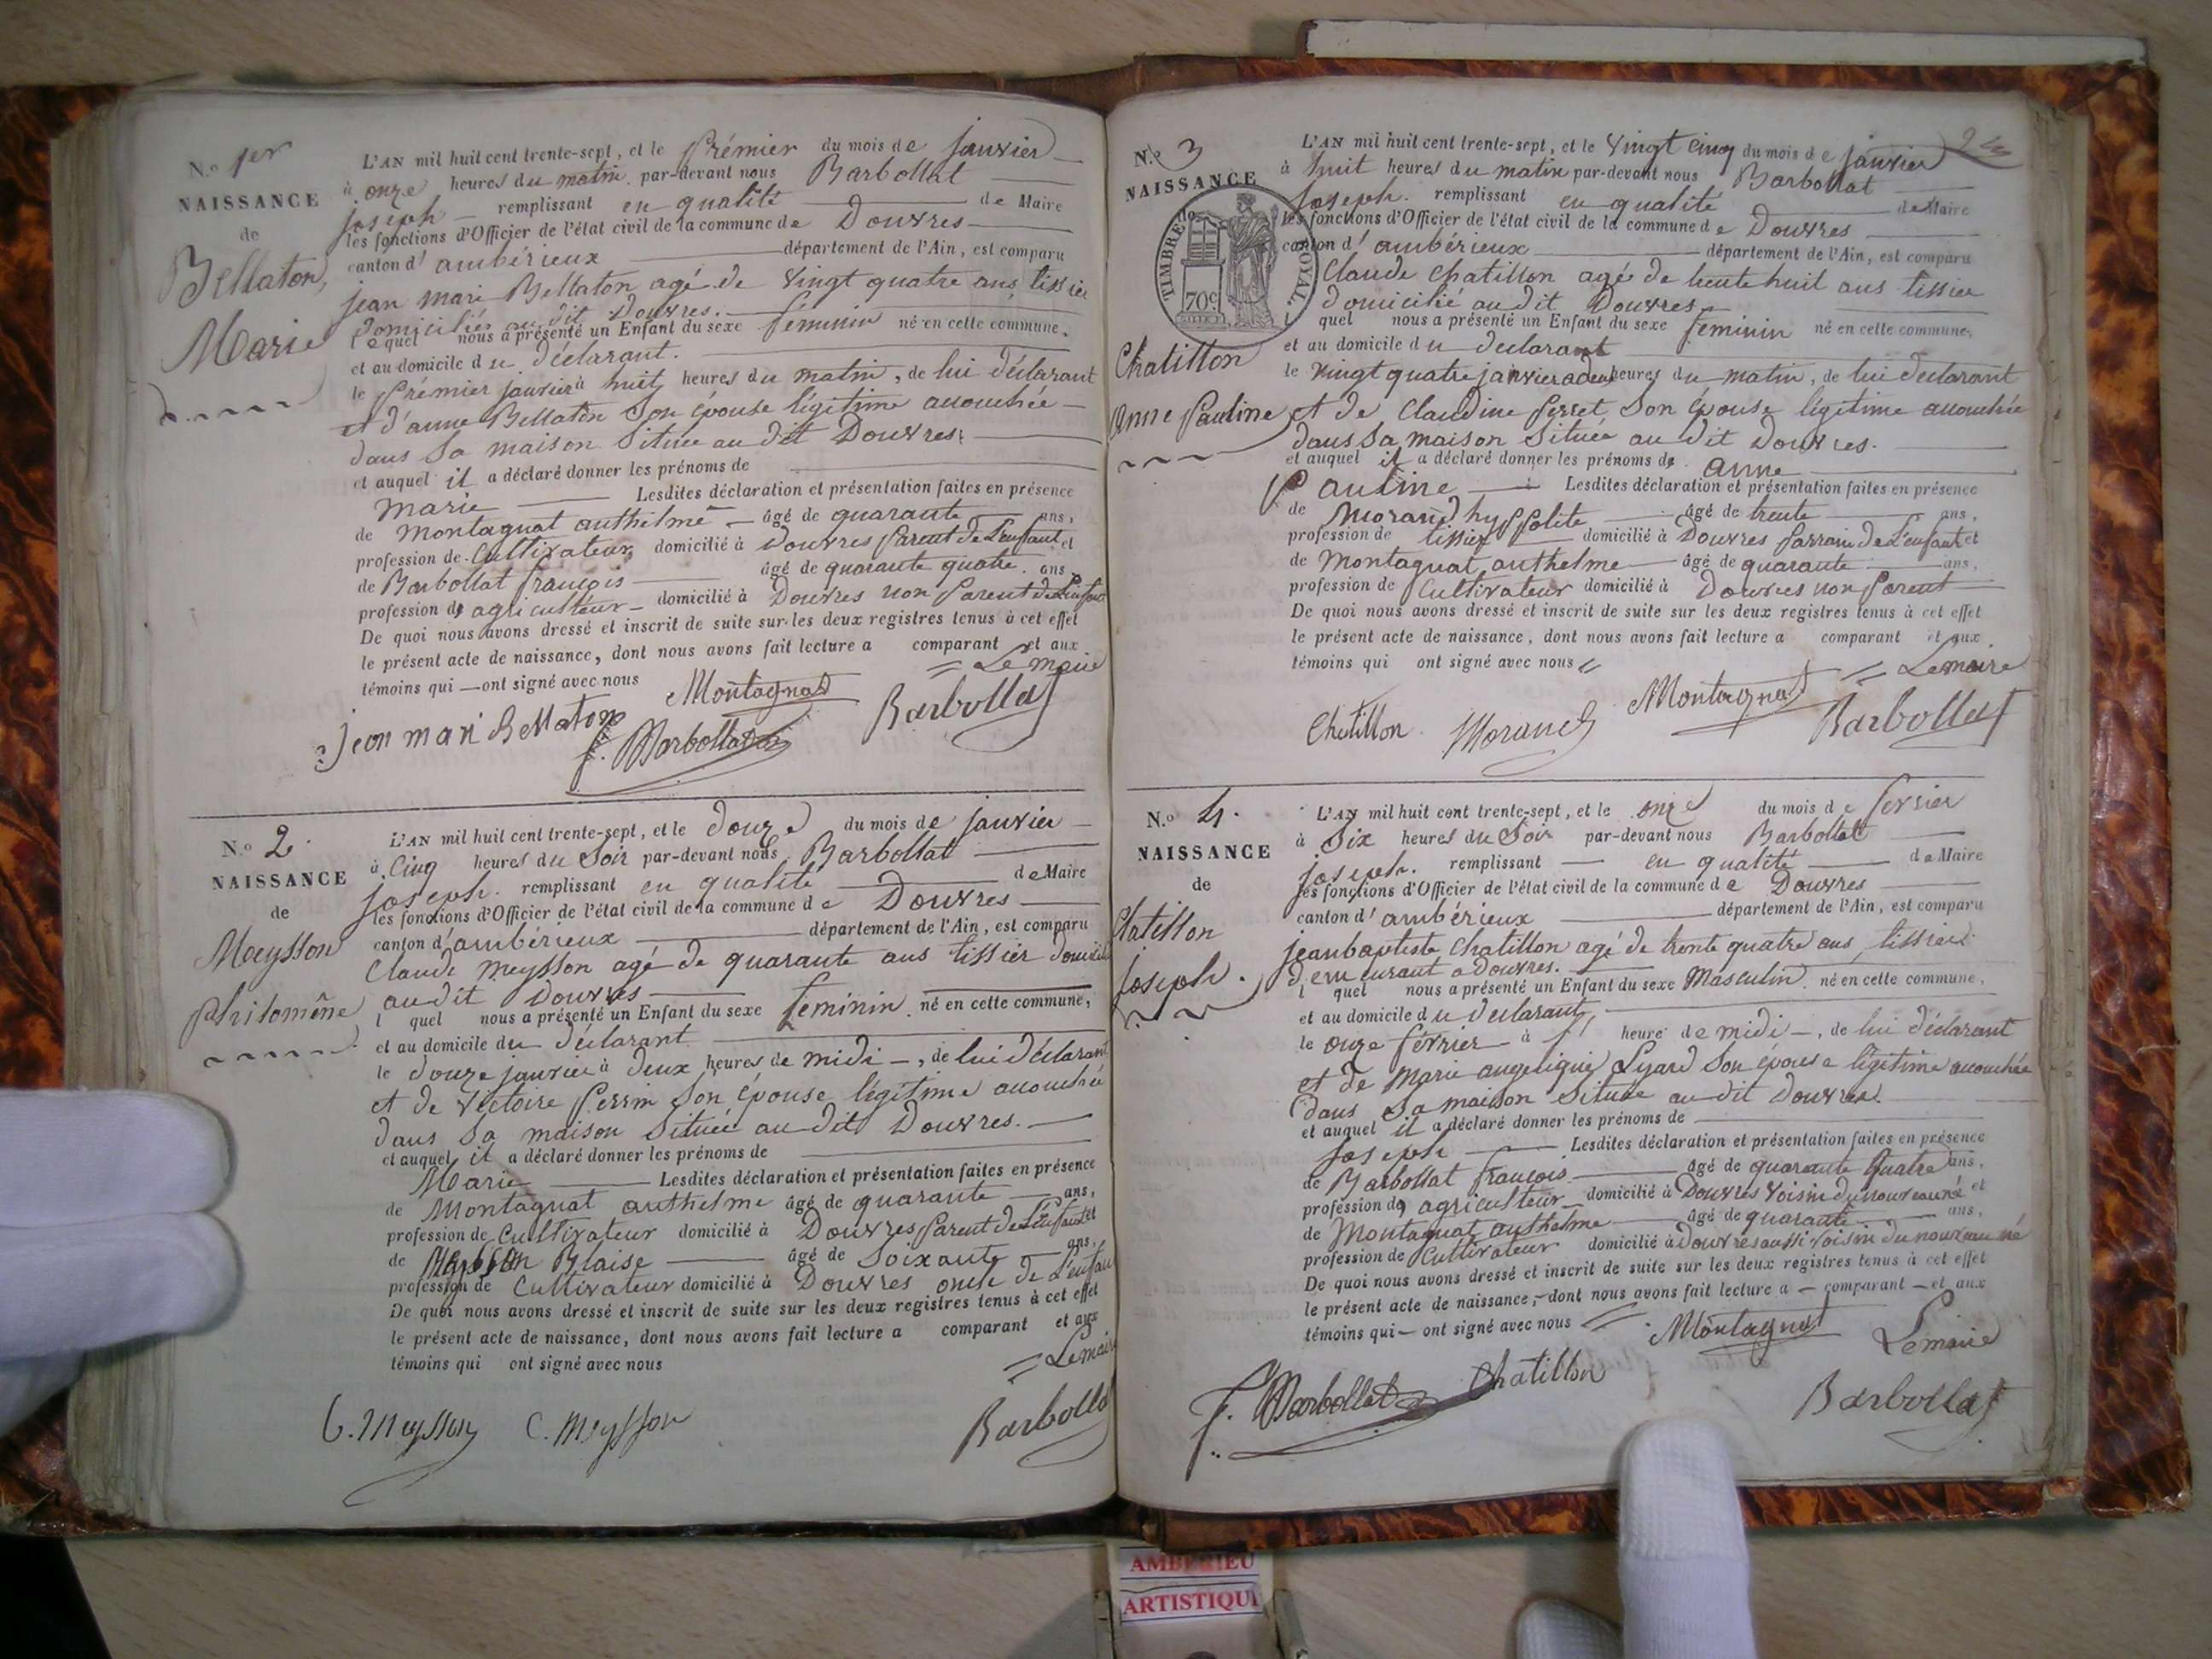 N.o 1er
NAISSANCE
de
Bellaton,
Marie
L'AN mil huit cent trente-sept, et le Prémier du mois de janvier
à onze heures du matin par-devant nous Barbollat
joseph remplissant en qualité de Maire
les fonctions d'Officier de l'état civil de la commune de Douvres
canton d'ambérieux département de l'Ain, est comparu
jean marie Bellaton agé de vingt quatre ans, tissier
domicilié au dit Douvres.
lequel nous a présenté un Enfant du sexe féminin né en cette commune,
et au domicile du déclarant.
le Prémier janvier à huit heures du matin, de lui déclarant
et d'anne Bellaton son épouse légitime accouchée
dans sa maison située au dit Douvres.
et auquel il a déclaré donner les prénoms de
marie Lesdites déclaration et présentation faites en présence
de Montagnat anthelme âgé de quarante ans,
profession de Cultivateur domicilié à Douvres Parent de L'enfant et
de Barbollat françois âgé de quarante quatre ans,
profession de agriculteur domicilié à Douvres non Parent de L'enfant
De quoi nous avons dressé et inscrit de suite sur les deux registres tenus à cet effet
le présent acte de naissance, dont nous avons fait lecture a comparant et aux
témoins qui ont signé avec nous
Le maire
Montagnat
jean mari Bellaton
f. Barbollat
Barbollat
N.o 2
NAISSANCE
de
Meysson
Philomêne
L'AN mil huit cent trente-sept, et le douze du mois de janvier
à Cinq heures du Soir par-devant nous Barbollat
joseph. remplissant en qualité de Maire
les fonctions d'Officier de l'état civil de la commune de Douvres
canton d'ambérieux département de l'Ain, est comparu
Claude Meysson agé de quarante ans tissier domicilié
au dit Douvres
l quel nous a présenté un Enfant du sexe feminin né en cette commune,
et au domicile du déclarant
le douze janvier à deux heures de midi, de lui déclarant
et de Victoire Perrin son épouse légitime accouchée
dans sa maison située au dit Douvres.
et auquel il a déclaré donner les prénoms de
Marie Lesdites déclaration et présentation faites en présence
de Montagnat anthelme âgé de quarante ans,
profession de Cultivateur domicilié à Douvres Parent de L'enfant et
de Meysson Blaise âgé de Soixante ans,
profession de Cultivateur domicilié à Douvres oncle de L'enfant
De quoi nous avons dressé et inscrit de suite sur les deux registres tenus à cet effet
le présent acte de naissance, dont nous avons fait lecture a comparant et aux
témoins qui ont signé avec nous
Le maire
Meysson C. Meysson
Barbollat
24
N.o 3
NAISSANCE
TIMBRE ROYAL.
70c
Chatillon
Anne Pauline
L'AN mil huit cent trente-sept, et le Vingt Cinq du mois de janvier
à huit heures du matin par-devant nous Barbollat
Joseph. remplissant en qualité de Maire
les fonctions d'Officier de l'état civil de la commune de Douvres
canton d'ambérieux département de l'Ain, est comparu
Claude Chatillon agé de trente huit ans tissier
domicilié au dit Douvres
quel nous a présenté un Enfant du sexe feminin né en cette commune,
et au domicile du declarant
le vingt quatre janvier a deux heures du matin, de lui declarant
et de Claudine Perret son épouse légitime accouchée
dans sa maison située au dit Douvres.
et auquel il a déclaré donner les prénoms de anne
Pauline Lesdites déclaration et présentation faites en présence
de Morand hyppolite âgé de trente ans,
profession de tissier domicilié à Douvres Parrain de L'enfant et
de Montagnat anthelme âgé de quarante ans,
profession de Cultivateur domicilié à Douvres non Parent
De quoi nous avons dressé et inscrit de suite sur les deux registres tenus à cet effet
le présent acte de naissance, dont nous avons fait lecture a comparant et aux
témoins qui ont signé avec nous
Le maire
Chatillon Morand Montagnat Barbollat
N.o 4.
NAISSANCE
de
Chatillon
Joseph.
L'AN mil huit cent trente-sept, et le onze du mois de fevrier
à Six heures du Soir par-devant nous Barbollat
joseph. remplissant en qualité de Maire
les fonctions d'Officier de l'état civil de la commune de Douvres
canton d'ambérieux département de l'Ain, est comparu
jean baptiste Chatillon agé de trente quatre ans, tissier
demeurant a Douvres.
l quel nous a présenté un Enfant du sexe Masculin né en cette commune,
et au domicile du declarant,
le onze février à heure de midi, de lui déclarant
et de Marie angelique son épouse légitime accouchée
dans sa maison située au dit Douvres.
et auquel il a déclaré donner les prénoms de
joseph Lesdites déclaration et présentation faites en présence
de Barbollat françois âgé de quarante Quatre ans,
profession de agriculteur domicilié à Douvres voisin du nouveau né et
de Montagnat anthelme âgé de quarante ans,
profession de Cultivateur domicilié à Douvres aussi voisin du nouveau né
De quoi nous avons dressé et inscrit de suite sur les deux registres tenus à cet effet
le présent acte de naissance, dont nous avons fait lecture a comparant et aux
témoins qui ont signé avec nous
Montagnat Le maire
f. Barbollat Chatillon Barbollat
AMBERIEU
ARTISTIQU